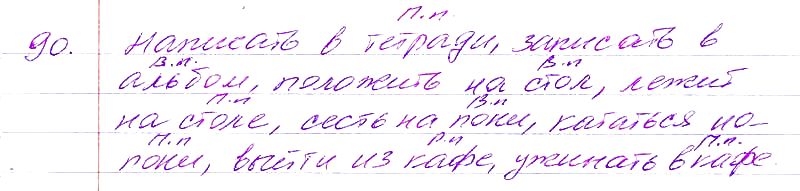 П.п.
90. Написать в тетради, записать в
В.п. В.п
альбом, положить на стол, лежит
П.п В.п
на столе, сесть на пони, кататься на
П.п Р.п П.п.
пони, выйти из кафе, ужинать в кафе